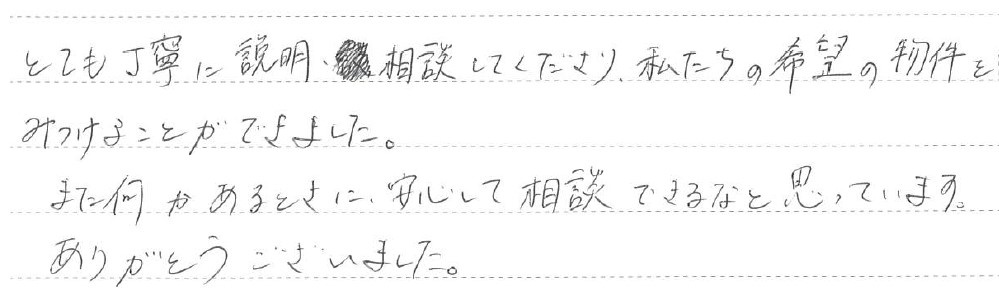 とても丁寧に説明、相談してくださり、私たちの希望の物件を
みつけることができました。
また何かあるときに、安心して相談できるなと思っています。
ありがとうございました。